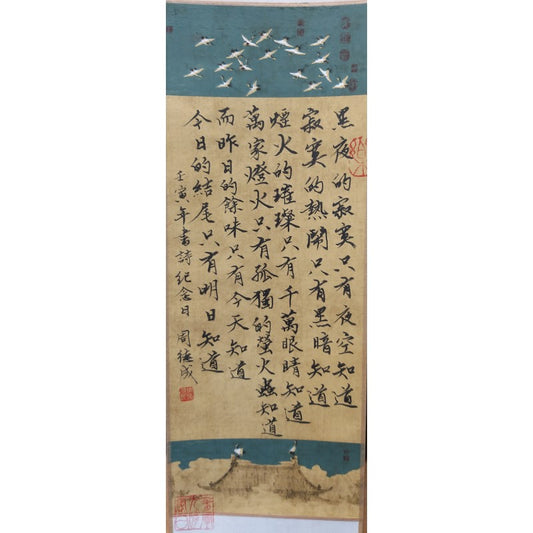 黑夜的寂寞只有夜空知道
寂寞的熱鬧只有黑暗知道
煙火的璀璨只有千萬眼睛知道
萬家燈火只有孤獨的螢火蟲知道
而昨日的餘味只有今天知道
今日的結尾只有明日知道
壬寅年書詩紀念日 周德成